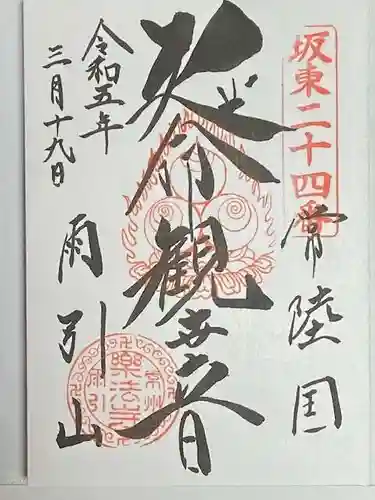 坂東二十四番
常陸国
延命観世音
雨引山
令和五年
三月十九日
常州
樂法寺
雨引